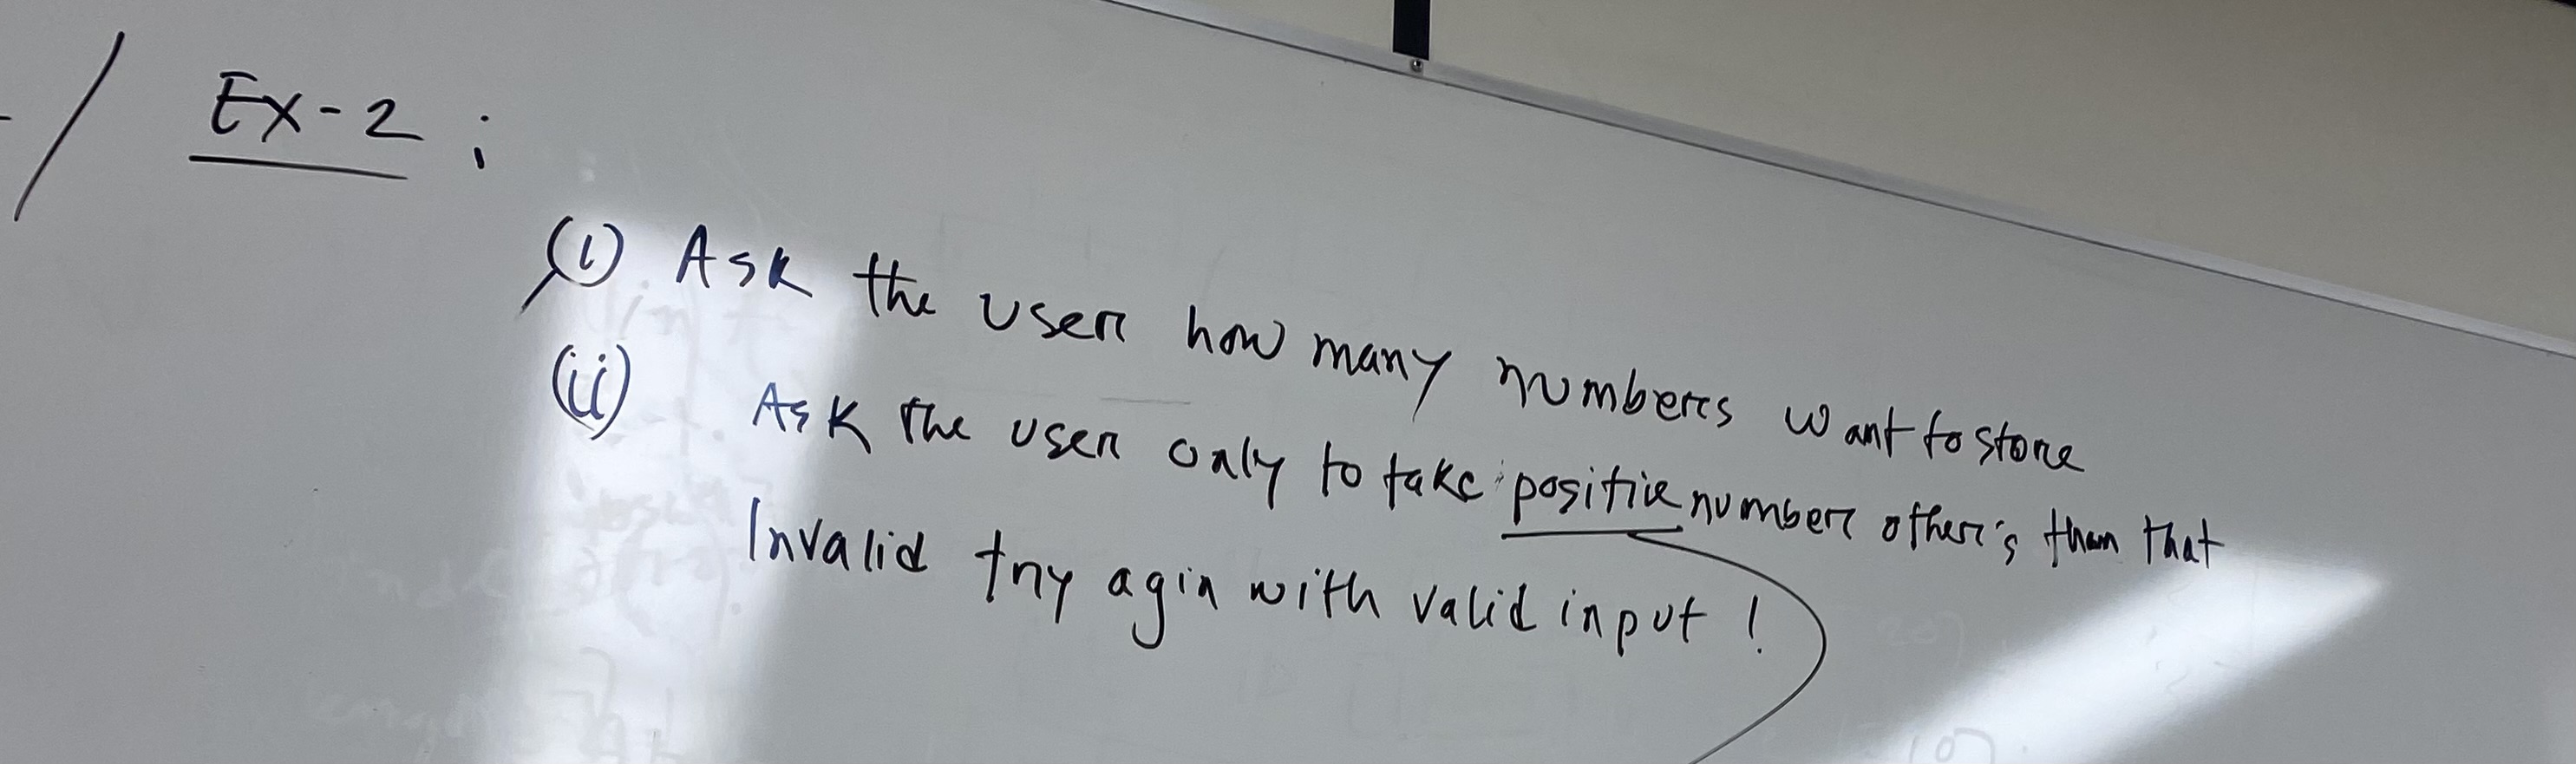 Ex-2 :
(i) Ask the user how many numbers want to store
(ii) Ask the user only to take positive number other's than that
Invalid try agin with valid input !